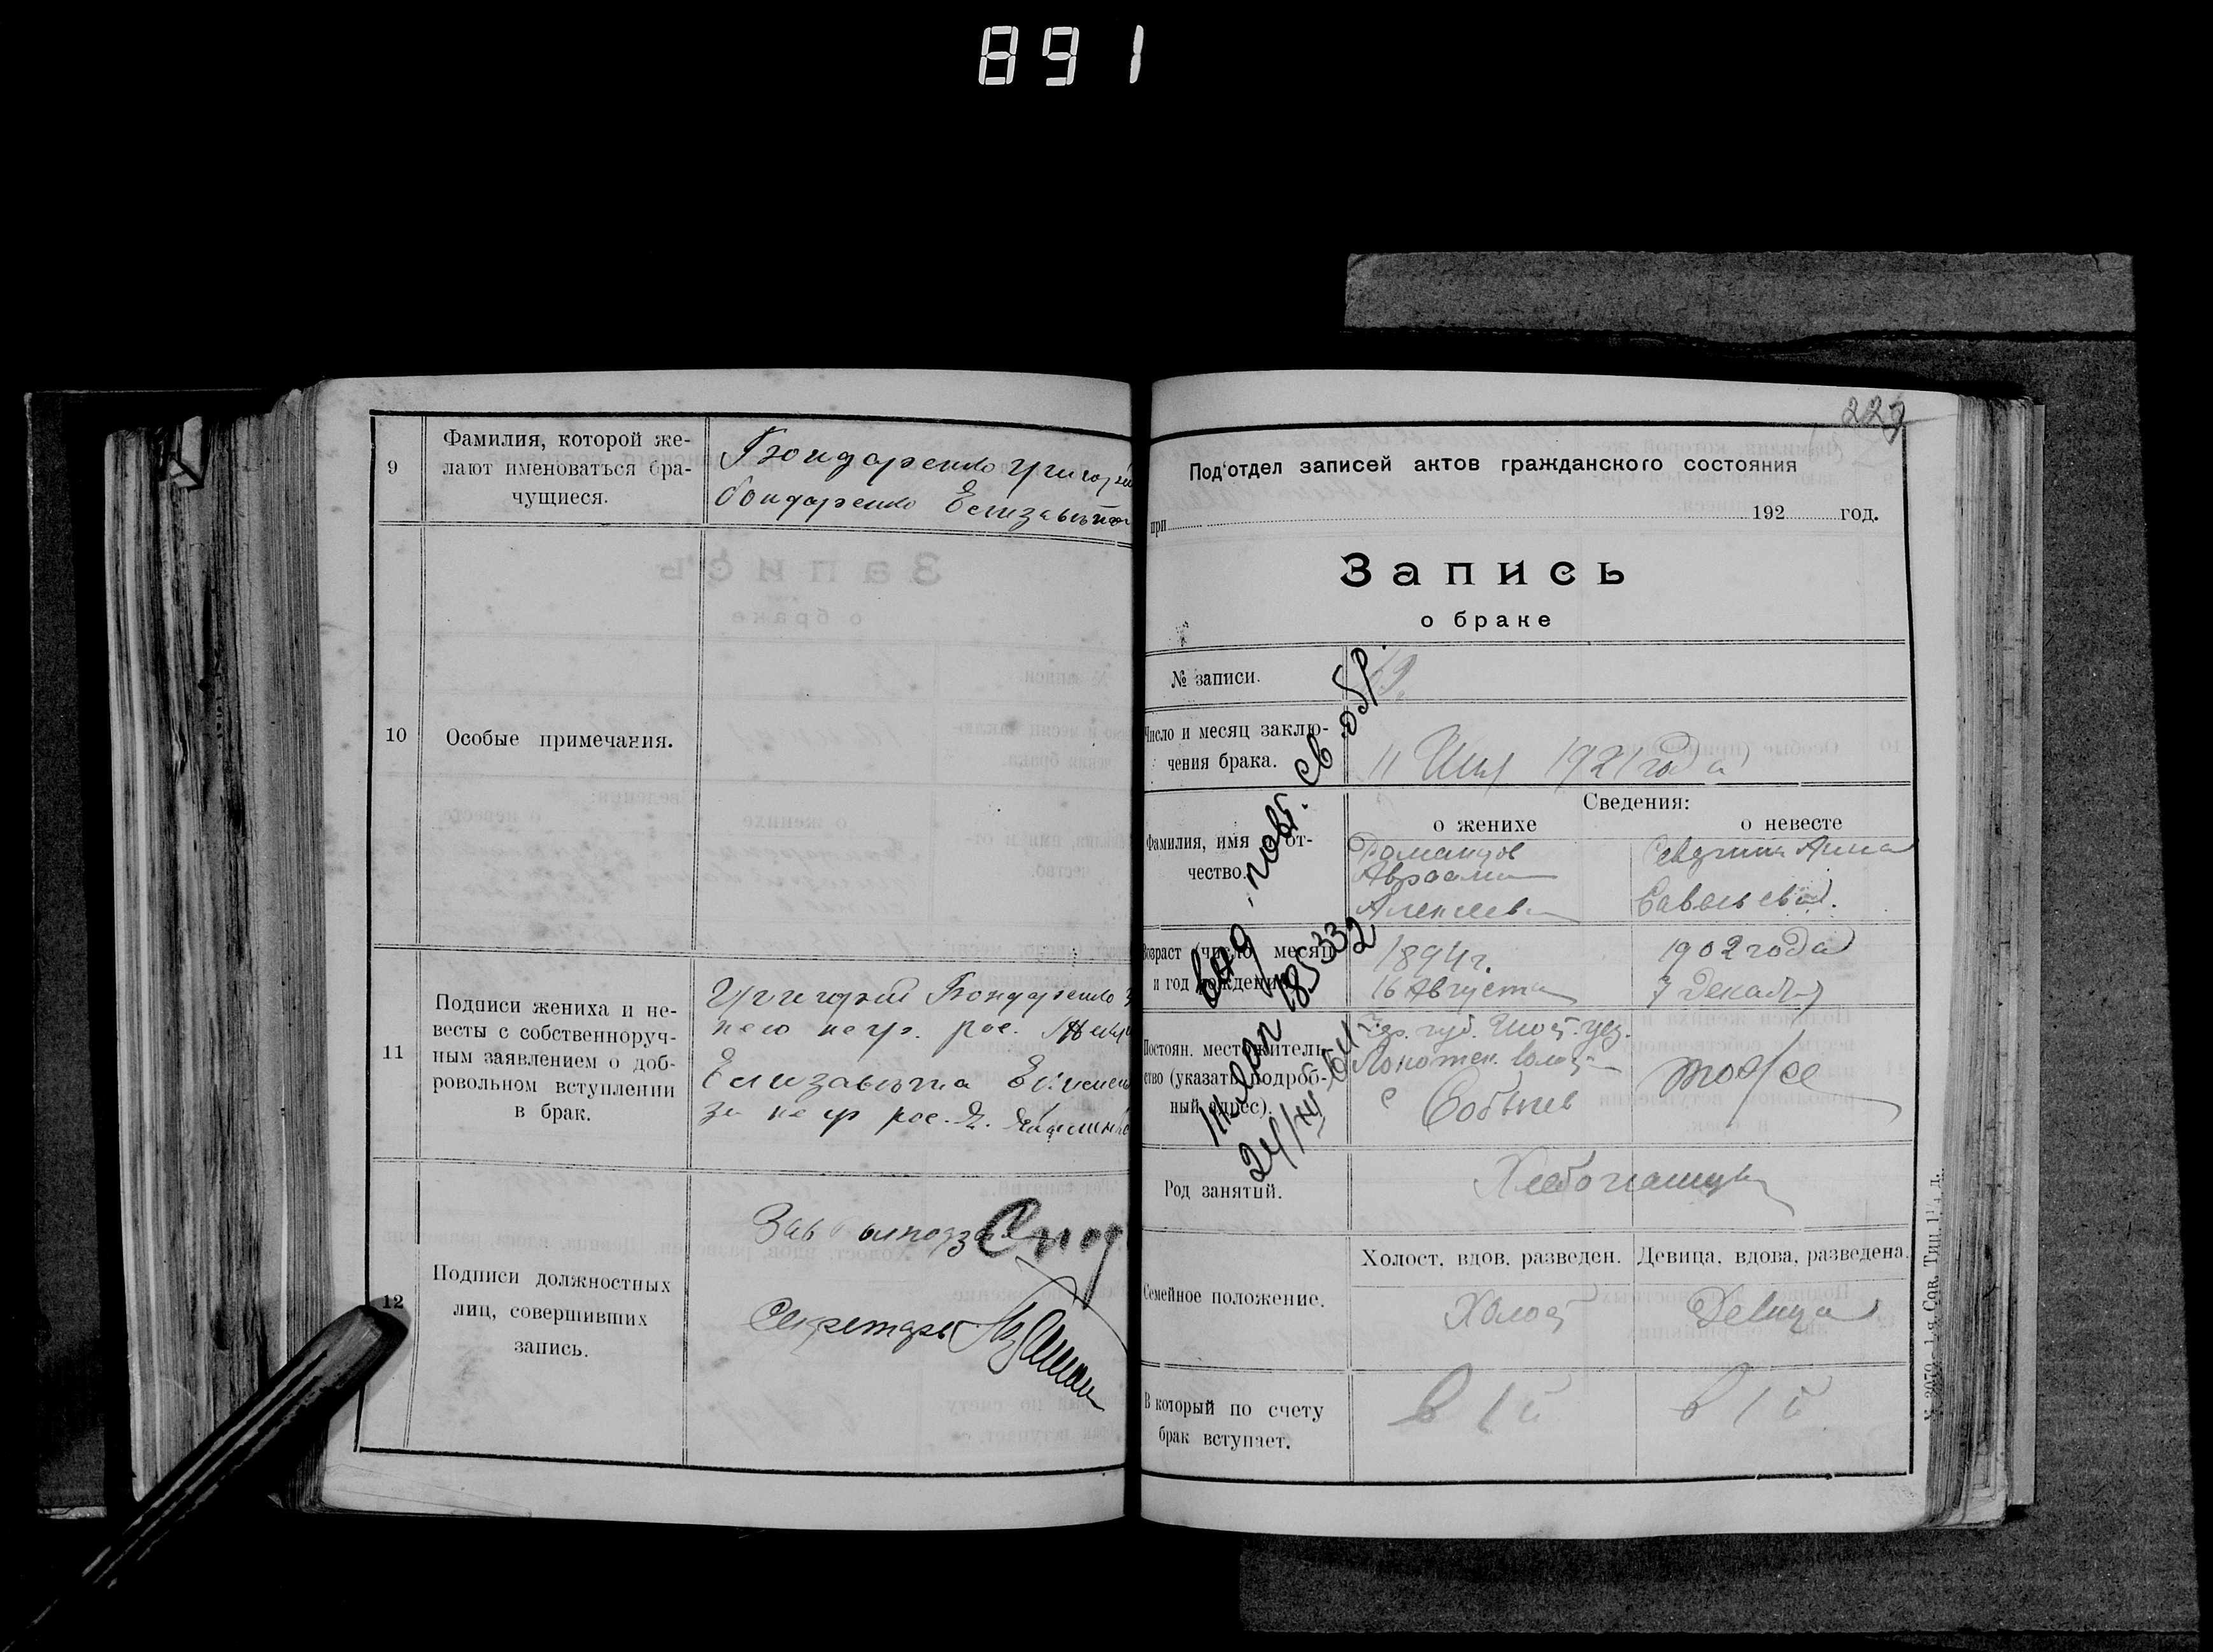 891
9
Фамилия, которой же-
лают именоваться бра-
чущиеся.
Бондаренко Григорий
бондаренко Елизавета
10
Особые примечания.
11
Подписи жениха и не-
весты с собственноруч-
ным заявлением о доб-
ровольном вступлении
в брак.
Григорий Бондаренко
негр. рос.
Елизавета
за негр рос. Я.
12
Подписи должностных
лиц, совершивших
запись.
Зав
Секретарь
227
Под'отдел записей актов гражданского состояния
при 192 год.
Запись
о браке
№ записи.
19.
Число и месяц заклю-
чения брака.
11 1921 года
Сведения:
о женихе
о невесте
Фамилия, имя и от-
чество.
Романцов
Авраам
Алексеев
Анна
Савельевна.
Возраст (число, месяц
и год рождения).
1894 г.
16 Августа
1902 года
7 Декабр
Постоян. местожитель-
ство (указать подроб-
ный адрес).
губ. уез.
волост
с
тоже
Род занятий.
Хлебопашцы
Семейное положение.
Холост. вдов. разведен.
Девица, вдова, разведена.
Холост
Девица
В который по счету
брак вступает.
в 1й
в 1й
выд. повт. св обр.
185332
24/